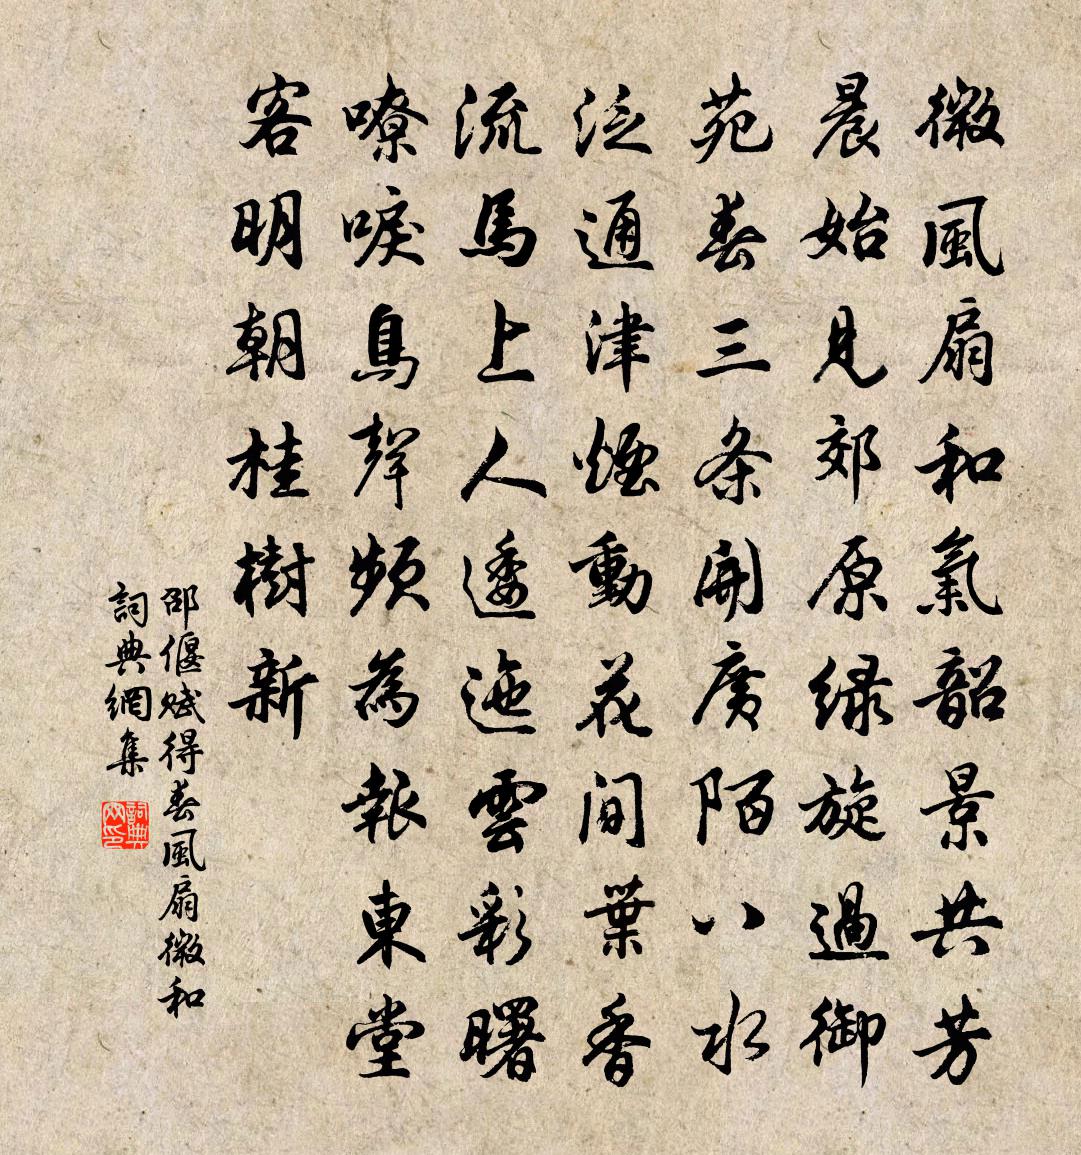 微風扇和氣韶景共芳
晨始見郊原綠旋過御
苑春三条開廣陌八水
泛通津煙動花間葉香
流馬上人逶迤雲彩曙
嘹唳鳥聲頻為報東堂
客明朝桂樹新
邵偃賦得春風扇微和
詞典網集